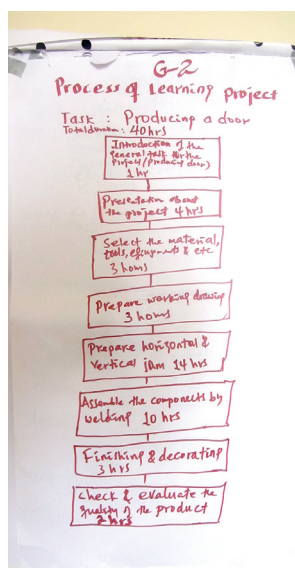 G-2
Process of Learning project
Task : Producing a door
Total duration : 40 hrs
Introduction of the
general task for the
project (producing door)
1 hr
Presentation about
the project 4 hrs
Select the material,
tools, equipments & etc
3 hours
Prepare working drawing
3 hours
Prepare horizontal &
vertical jam 14 hrs
Assemble the components by
welding 10 hrs
Finishing & decorating
3 hrs
check & evaluate the
quality of the product
2 hrs